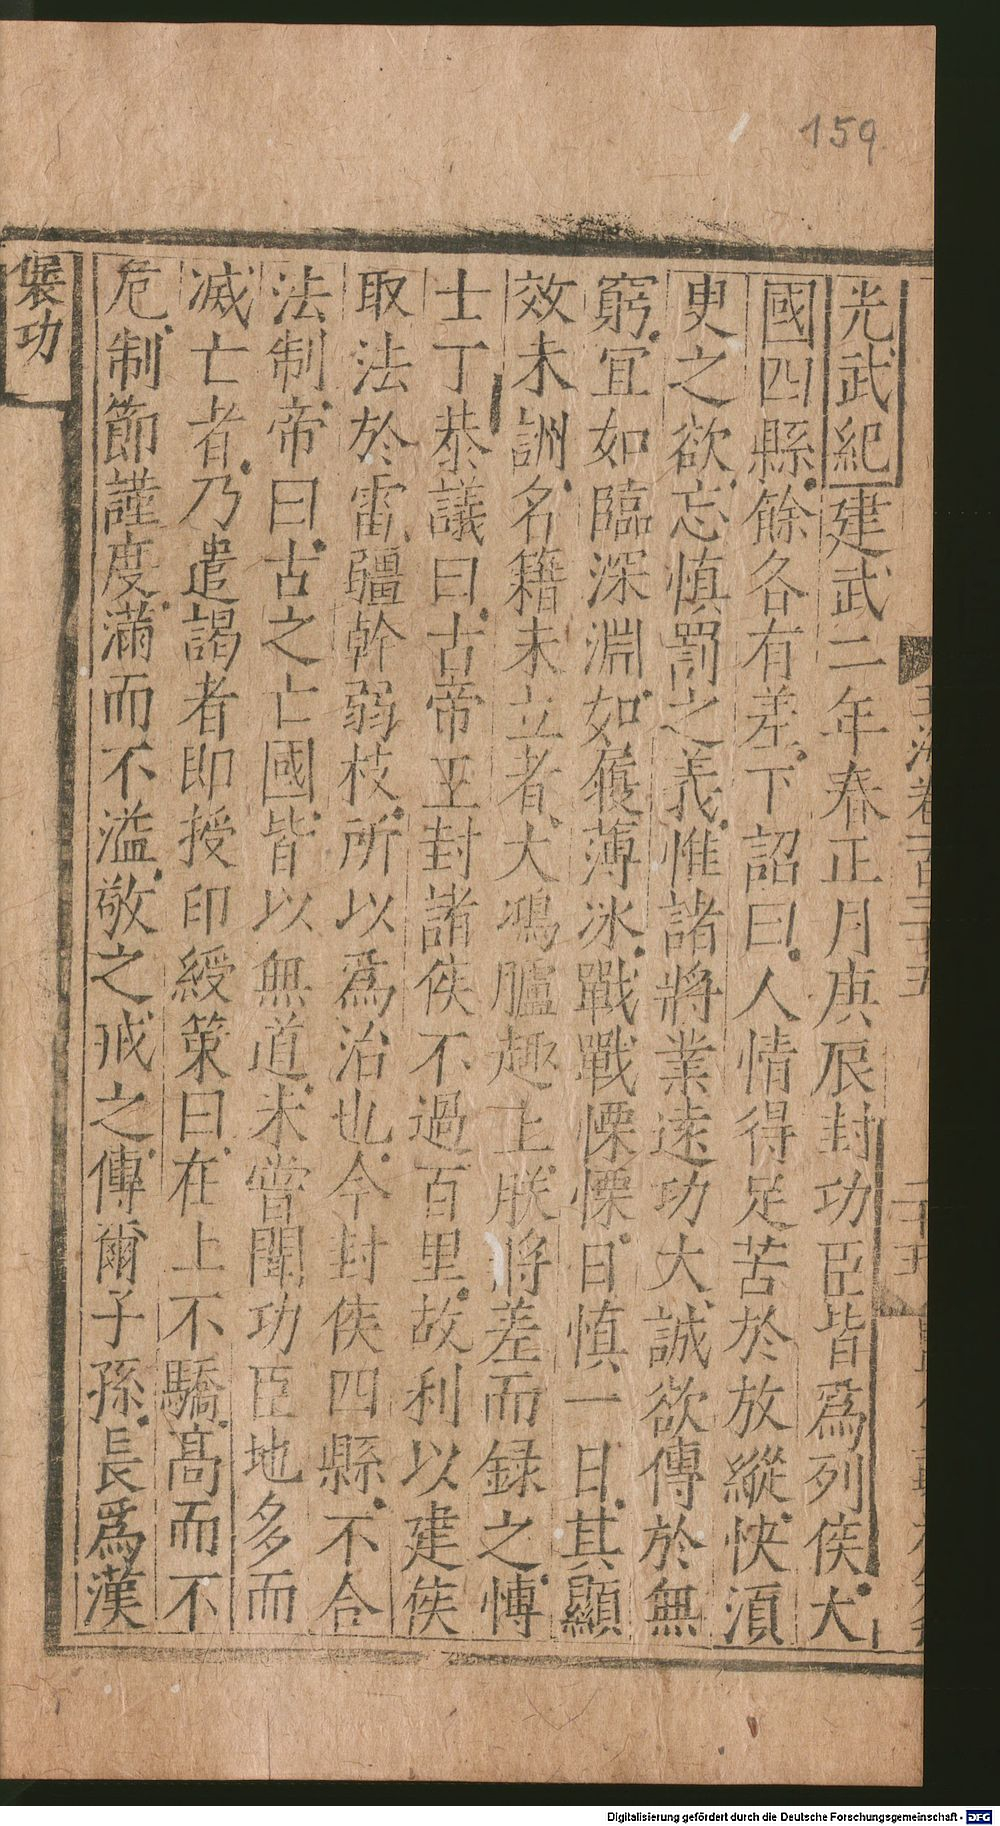 159
褒功
光武紀建武二年春正月庚辰封功臣皆爲列侯大
國四縣餘各有差下詔曰人情得足苦於放縱快湏
叟之欲忘慎罰之義惟諸將業遠功大誠欲傳於無
窮宜如臨深淵如履薄冰戰戰慄慄日慎一日其顯
效未詶名籍未立者大鴻臚趣上朕將差而録之愽
士丁恭議曰古帝王封諸侯不過百里故利以建侯
取法於雷疆幹弱枝所以爲治也今封侯四縣不合
法制帝曰古之亡國皆以無道未嘗聞功臣地多而
滅亡者乃遣謁者即授印綬策曰在上不驕高而不
危制節謹度滿而不溢敬之戒之傳爾子孫長爲漢
Digitalisierung gefördert durch die Deutsche Forschungsgemeinschaft - DFG